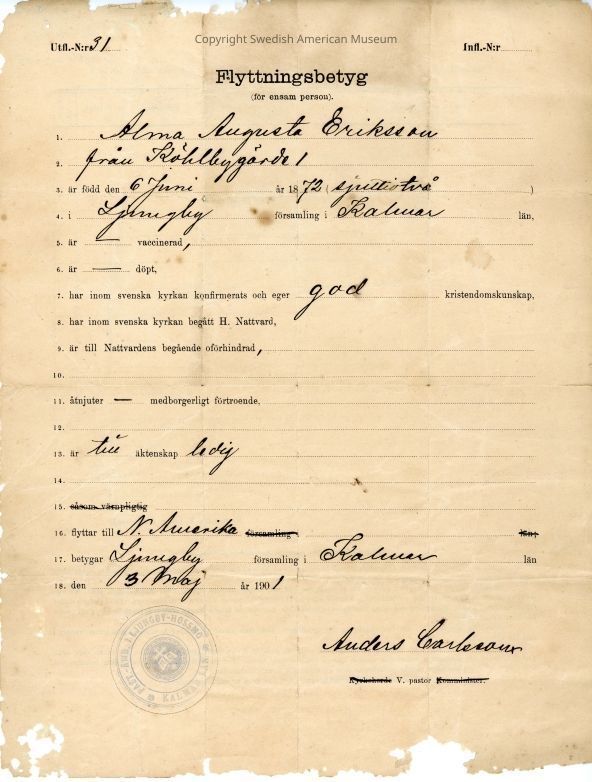 Copyright Swedish American Museum
Utfl.-N:r 31 Infl.-N:r
Flyttningsbetyg
(för ensam person).
1. Alma Augusta Eriksson
2. från Köhlbygärde 1
3. är född den 6 Juni år 1872 (sjuttiotvå)
4. i Ljungby församling i Kalmar län,
5. är — vaccinerad,
6. är — döpt,
7. har inom svenska kyrkan konfirmerats och eger god kristendomskunskap,
8. har inom svenska kyrkan begått H. Nattvard,
9. är till Nattvardens begående oförhindrad,
10.
11. åtnjuter — medborgerligt förtroende,
12.
13. är till äktenskap ledig
14.
15. såsom värnpligtig
16. flyttar till N. Amerika församling i län;
17. betygar Ljungby församling i Kalmar län
18. den 3 Maj år 1901
Anders Carlsson
Kyrkoherde V. pastor Komminister.
PAST. ÄMB. I LJUNGBY-HOSSMO
KALMAR LÄN